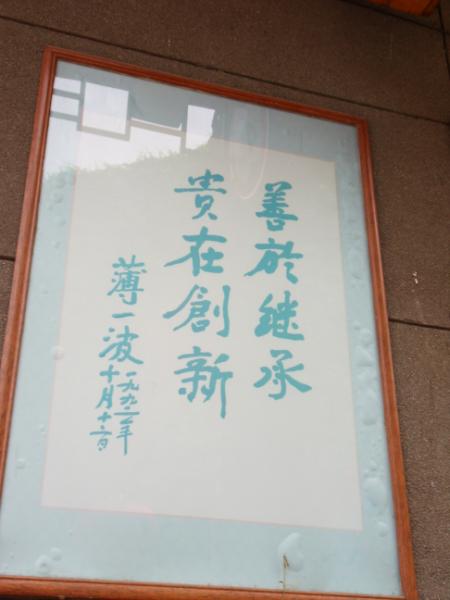 善於继承
貴在創新
薄一波
一九九二年
十月十六日